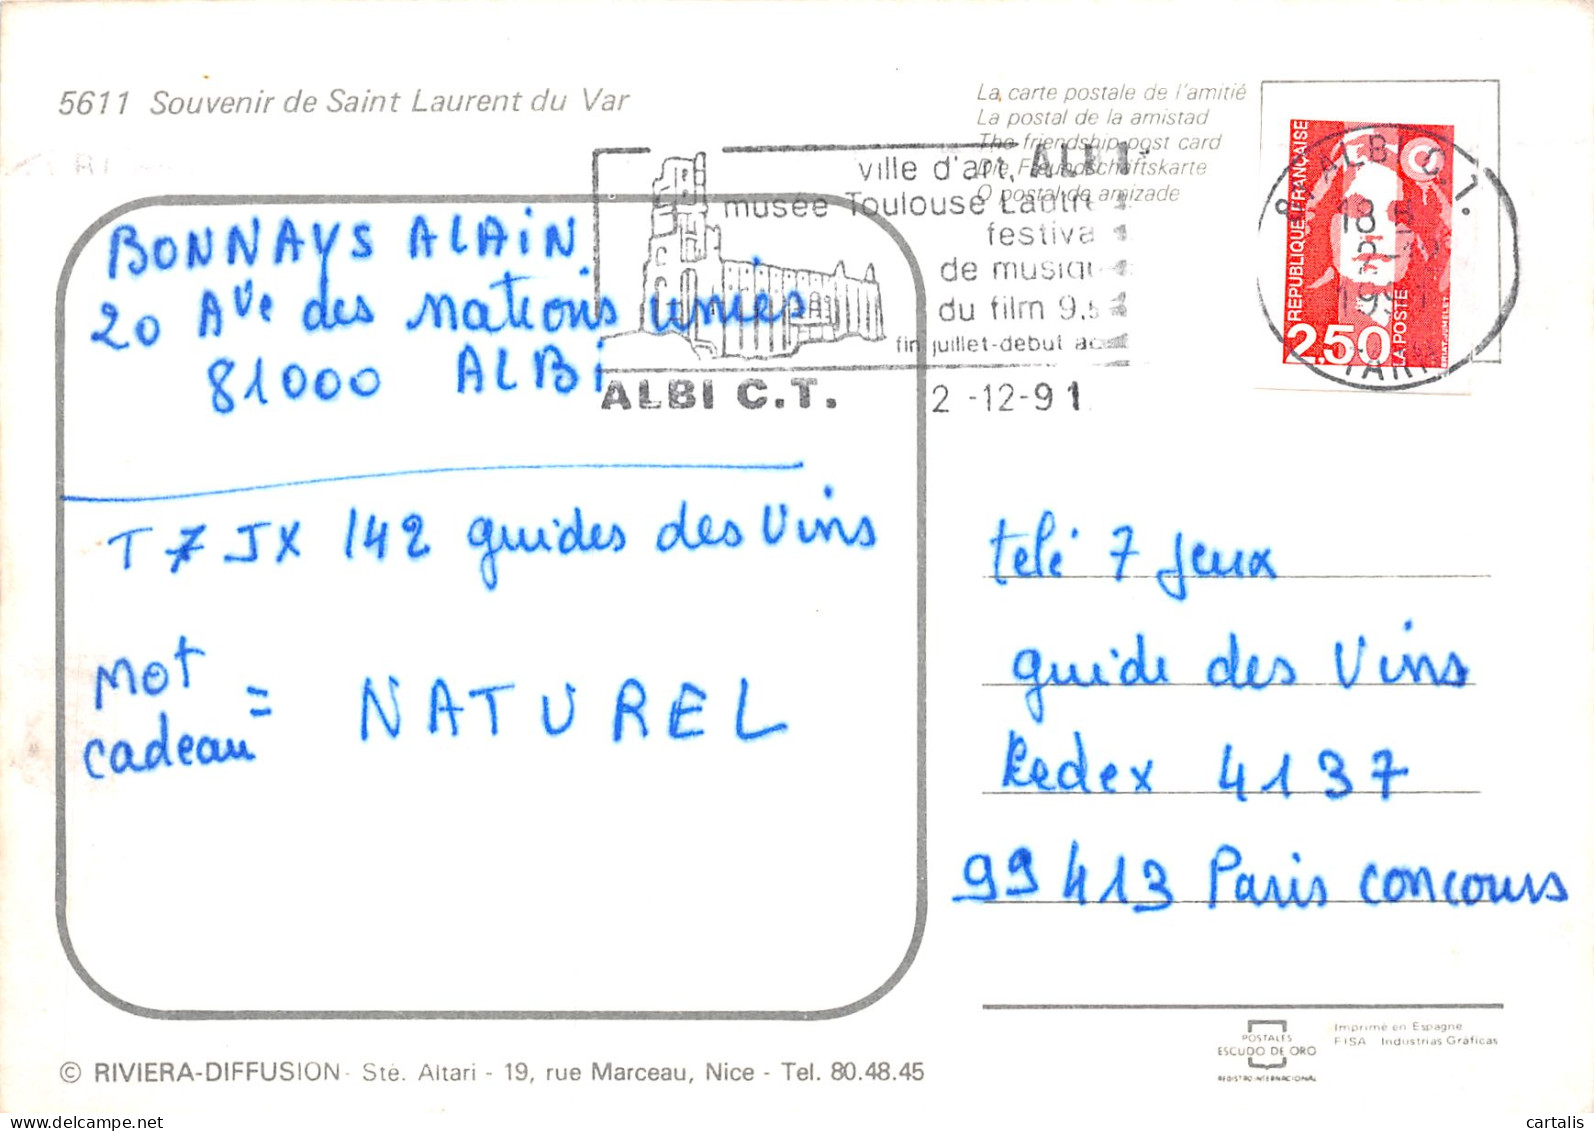 5611 Souvenir de Saint Laurent du Var
La carte postale de l'amitié
La postal de la amistad
The friendship post card
Die Freundschaftskarte
O postal de amizade
ville d'art, ALBI
musée Toulouse Lautre
festiva
de musiq
du film 9,5
fin juillet-debut ao
ALBI C.T.
2 -12-91
81 ALBI C.T.
18 H
2-12
1991
TARN
REPUBLIQUE FRANÇAISE
2,50
LA POSTE
BONNAYS ALAIN
20 Ave des nations unies
81000 ALBi
T7JX 142 guides des Vins
Mot
cadeau = NATUREL
télé 7 jeux
guide des Vins
Cedex 4137
99413 Paris concours
© RIVIERA-DIFFUSION - Sté. Altari - 19, rue Marceau, Nice - Tel. 80.48.45
POSTALES
ESCUDO DE ORO
REGISTRO INTERNACIONAL
Imprimé en Espagne
FISA Industrias Gráficas
cartalis
delcampe.net